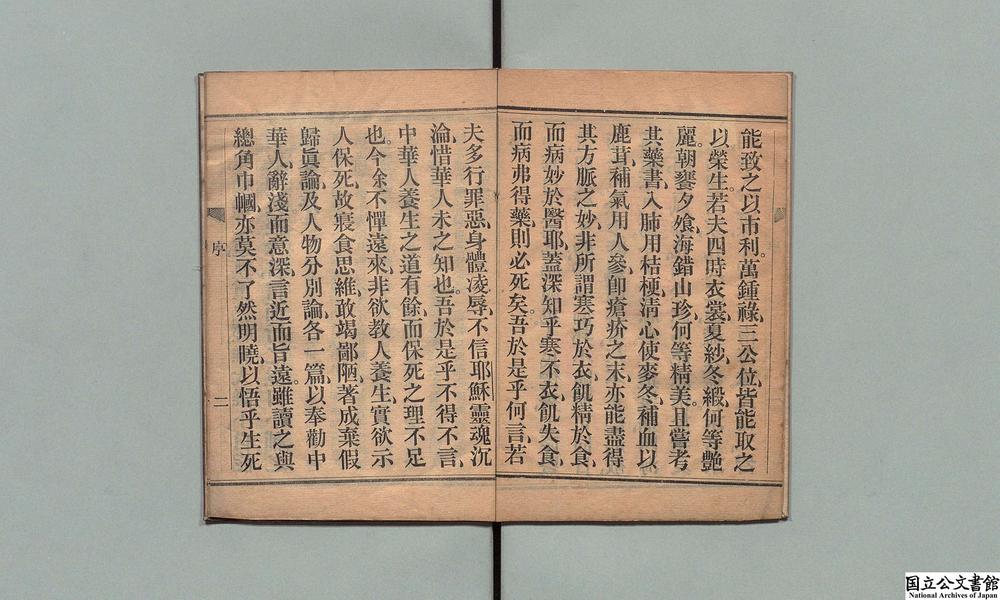 能致之以市利。萬鍾祿、三公位、皆能取之
以榮生。若夫四時衣裳、夏紗、冬緞、何等艷
麗。朝饔夕飧、海錯山珍、何等精美。且嘗考
其藥書、入肺用桔梗、淸心使麥冬、補血以
鹿茸、補氣用人參、卽瘡疥之末、亦能盡得
其方脈之妙、非所謂寒巧於衣、飢精於食、
而病妙於醫耶。蓋深知乎寒不衣、飢失食、
而病弗得藥、則必死矣。吾於是乎何言、若
夫多行罪惡、身體凌辱、不信耶穌、靈魂沉
淪、惜華人未之知也。吾於是乎不得不言、
中華人養生之道有餘、而保死之理不足
也。今余不憚遠來、非欲教人養生、實欲示
人保死、故寢食思維、敢竭鄙陋、著成棄假
歸眞論、及人物分別論、各一篇、以奉勸中
華人、辭淺而意深、言近而旨遠。雖讀之與
總角巾幗、亦莫不了然明曉、以悟乎生死
序
二
国立公文書館
National Archives of Japan